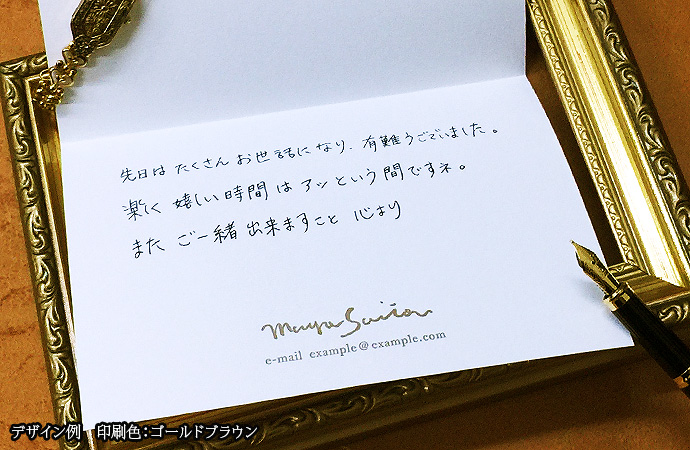 先日は たくさん お世話になり、有難うございました。
楽しく 嬉しい 時間 は アッという間ですネ。
また ご一緒 出来ますこと 心より
Maya Saiton
e-mail example@example.com
デザイン例 印刷色：ゴールドブラウン